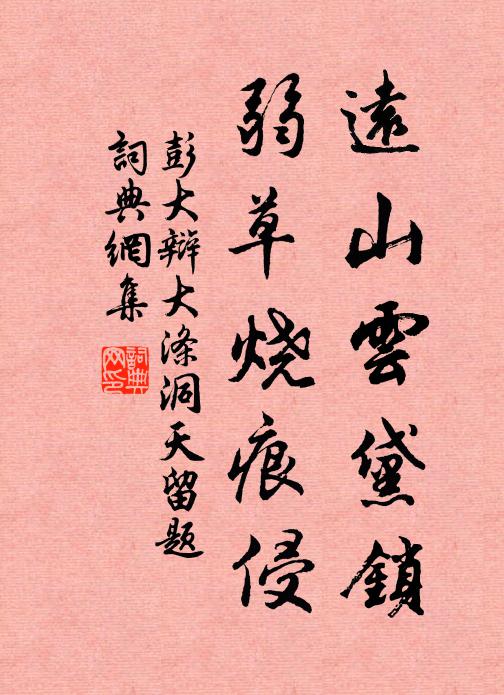 遠山雲黛鎖
弱草烧痕侵
彭大辯大滌洞天留题
詞典網集
詞典
网印